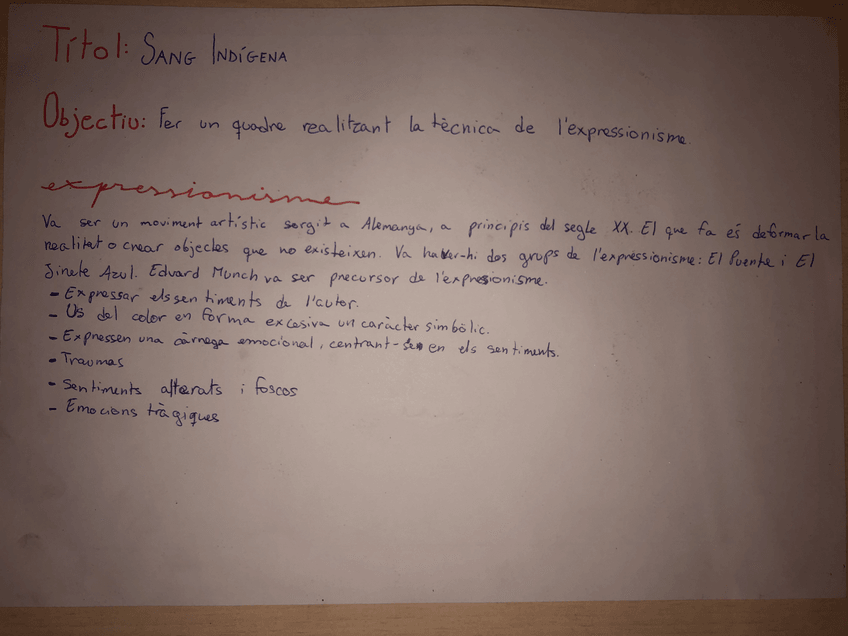 Títol: SANG INDÍGENA
Objectiu: Fer un quadre realitzant la tècnica de l'expressionisme.
expressionisme
Va ser un moviment artístic sorgit a Alemanya, a principis del segle XX. El que fa és deformar la
realitat o crear objectes que no existeixen. Va haver-hi dos grups de l'expressionisme: El Puente i El
Jinete Azul. Edvard Munch va ser precursor de l'expresionisme.
- Expressar els sentiments de l'autor.
- Ús del color en forma excesiva un caràcter simbòlic.
- Expressen una càrrega emocional, centrant-se en els sentiments.
- Traumas
- Sentiments alterats i foscos
- Emocions tràgiques